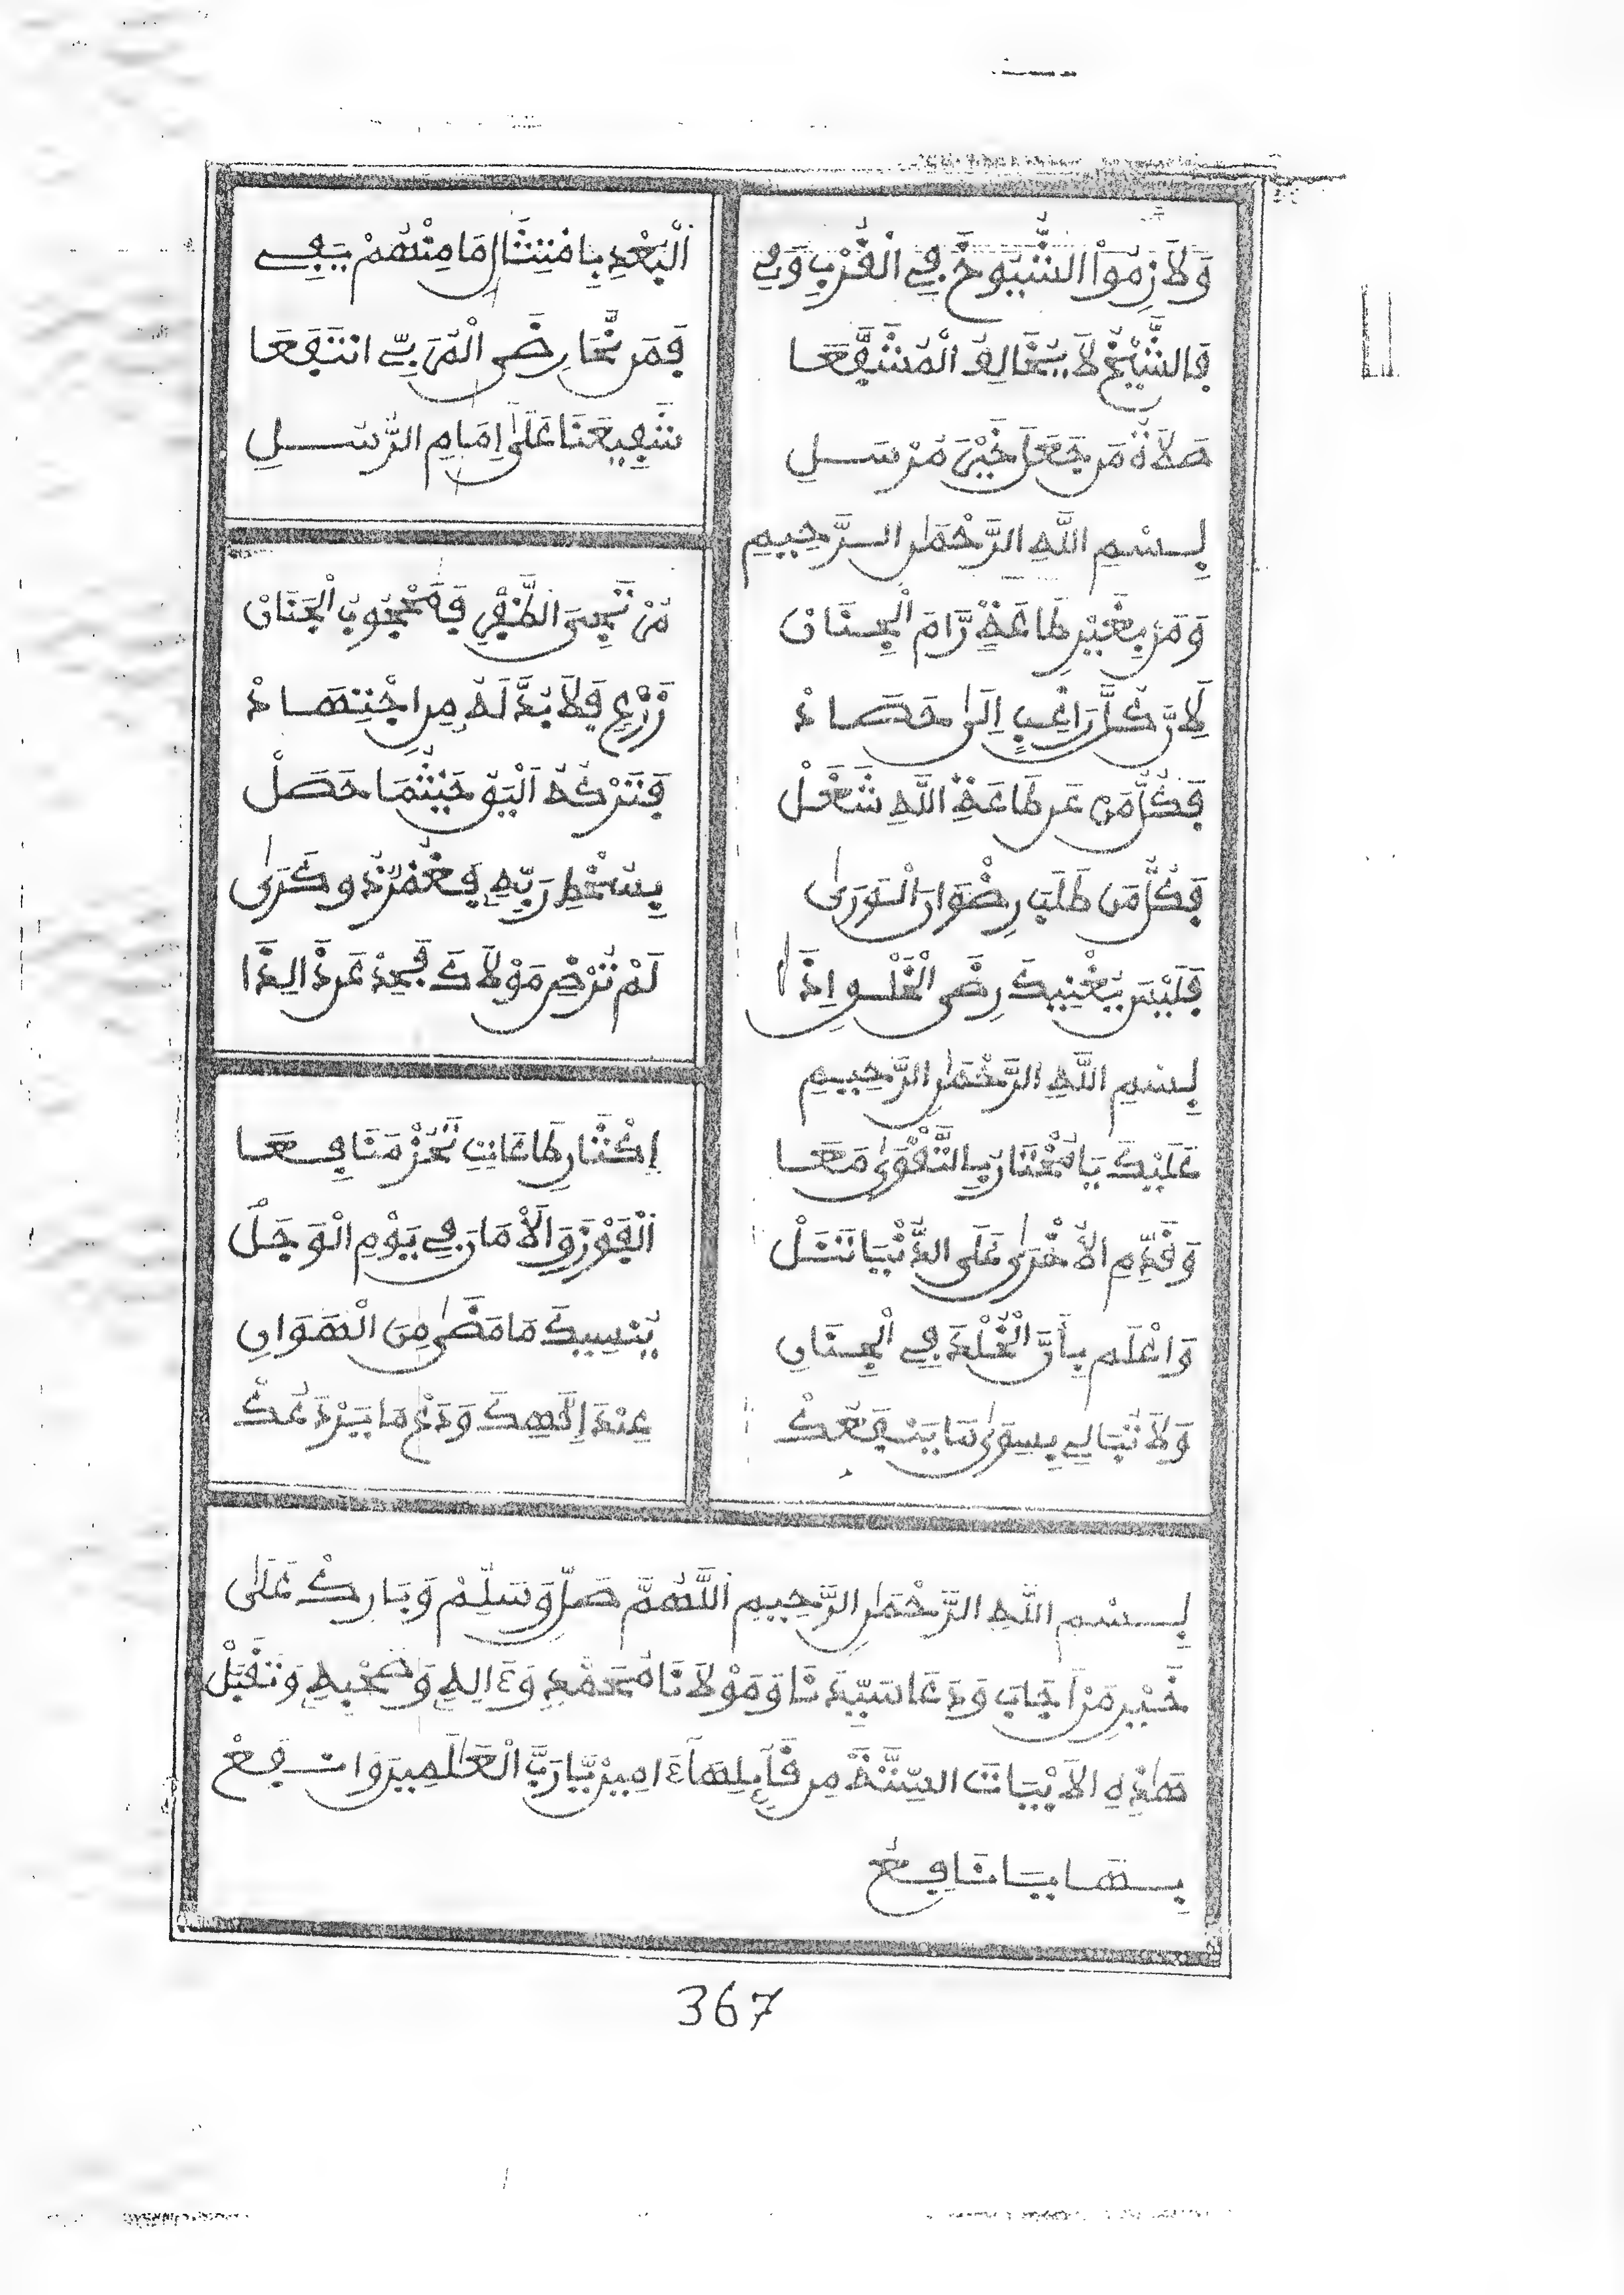 وَلَازِمُوا الشُّيُوخَ فِي الْقُرْبِ وَفِي
اَلْبُعْدِ بِامْتِثَالِ مَا مِنْهُمْ يَفِي
فَالشَّيْخُ لَا يُخَالِفُ الْمُشَفَّعَا
فَمَن نَّحَا رِضَى الْمُرَبِّي انتَفَعَا
صَلَاةُ مَن جَعَلَ خَيْرَ مُرْسَلِ
شَفِيعَنَا عَلَىٰ إِمَامِ الرُّسُلِ
بِسْمِ اللَّهِ الرَّحْمَٰنِ الرَّحِيمِ
وَمَن بِغَيْرِ طَاعَةٍ رَّامَ الْجِنَانْ
لِأَنَّ كُلَّ رَاغِبٍ إِلَىٰ حَصَادْ
زَرْعٍ فَلَا بُدَّ لَهُ مِنِ اجْتِهَادْ
فَكُلُّ مَنْ عَن طَاعَةِ اللَّهِ شَغَلْ
فَتَرْكُهُ الْيَقْ حَيْثُمَا حَصَلْ
فَكُلُّ مَن طَلَبَ رِضْوَانَ الْوَرَىٰ
بِسُخْطِ رَبِّهِ فَعُمْرُهُ وكَرَىٰ
فَلَيْسَ يُغْنِيكَ رِضَى الْخَلْقِ إِذَا
لَمْ تُرْضِ مَوْلَاكَ فَحِدْ عَن ذَا الِذَا
بِسْمِ اللَّهِ الرَّحْمَٰنِ الرَّحِيمِ
عَلَيْكَ يَا مُخْتَارُ بِالتَّقْوَىٰ مَعَا
إِكْثَارِ طَاعَاتٍ تَحُزْ مَنَافِعَا
وَقَدِّمِ الْأُخْرَىٰ عَلَى الدُّنْيَا تَنَلْ
اَلْفَوْزَ وَالْأَمَانَ فِي يَوْمِ الْوَجَلْ
وَاعْلَم بِأَنَّ الْخُلْدَ فِي الْجِنَانِ
يُنسِيكَ مَا مَضَىٰ مِنَ الْهَوَانِ
وَلَا تُبَالِي بِسِوَىٰ مَا يَنفَعُكْ
عِندَ إِلَٰهِكَ وَدَعْ مَا يَرْدَعُكْ
بِسْمِ اللَّهِ الرَّحْمَٰنِ الرَّحِيمِ اَللَّهُمَّ صَلِّ وَسَلِّمْ وَبَارِكْ عَلَىٰ
خَيْرِ مَنْ اَجَابَ وَدَعَا سَيِّدِنَا وَمَوْلَانَا مُحَمَّدٍ وَءَالِهِ وَصَحْبِهِ وَتَقَبَّلْ
هَٰذِهِ الْأَبْيَاتَ السِّتَّةَ مِن قَائِلِهَا ءَامِين يَّا رَبَّ الْعَٰلَمِينَ وَانفَعْ
بِهَا يَا نَافِعُ
367